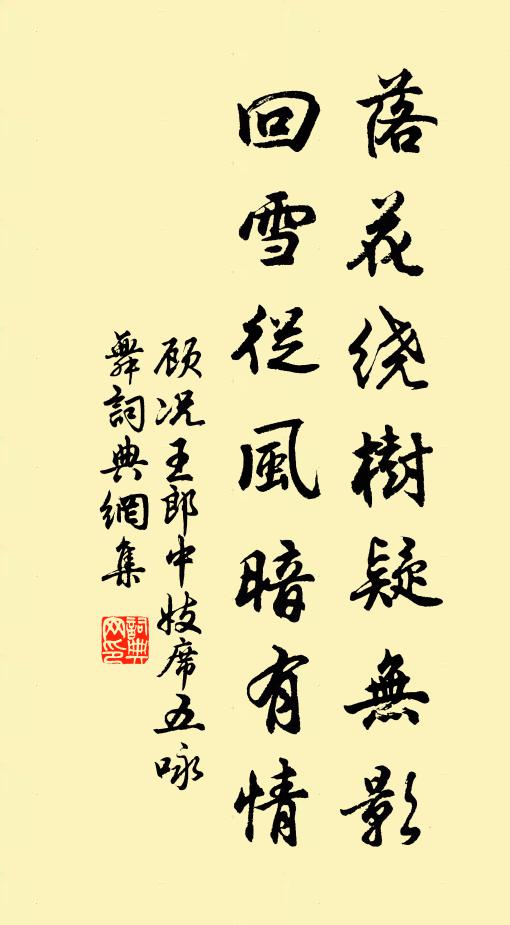 落花绕樹疑無影
回雪從風暗有情
顾况王郎中妓席五咏
舞詞典網集
詞典网印